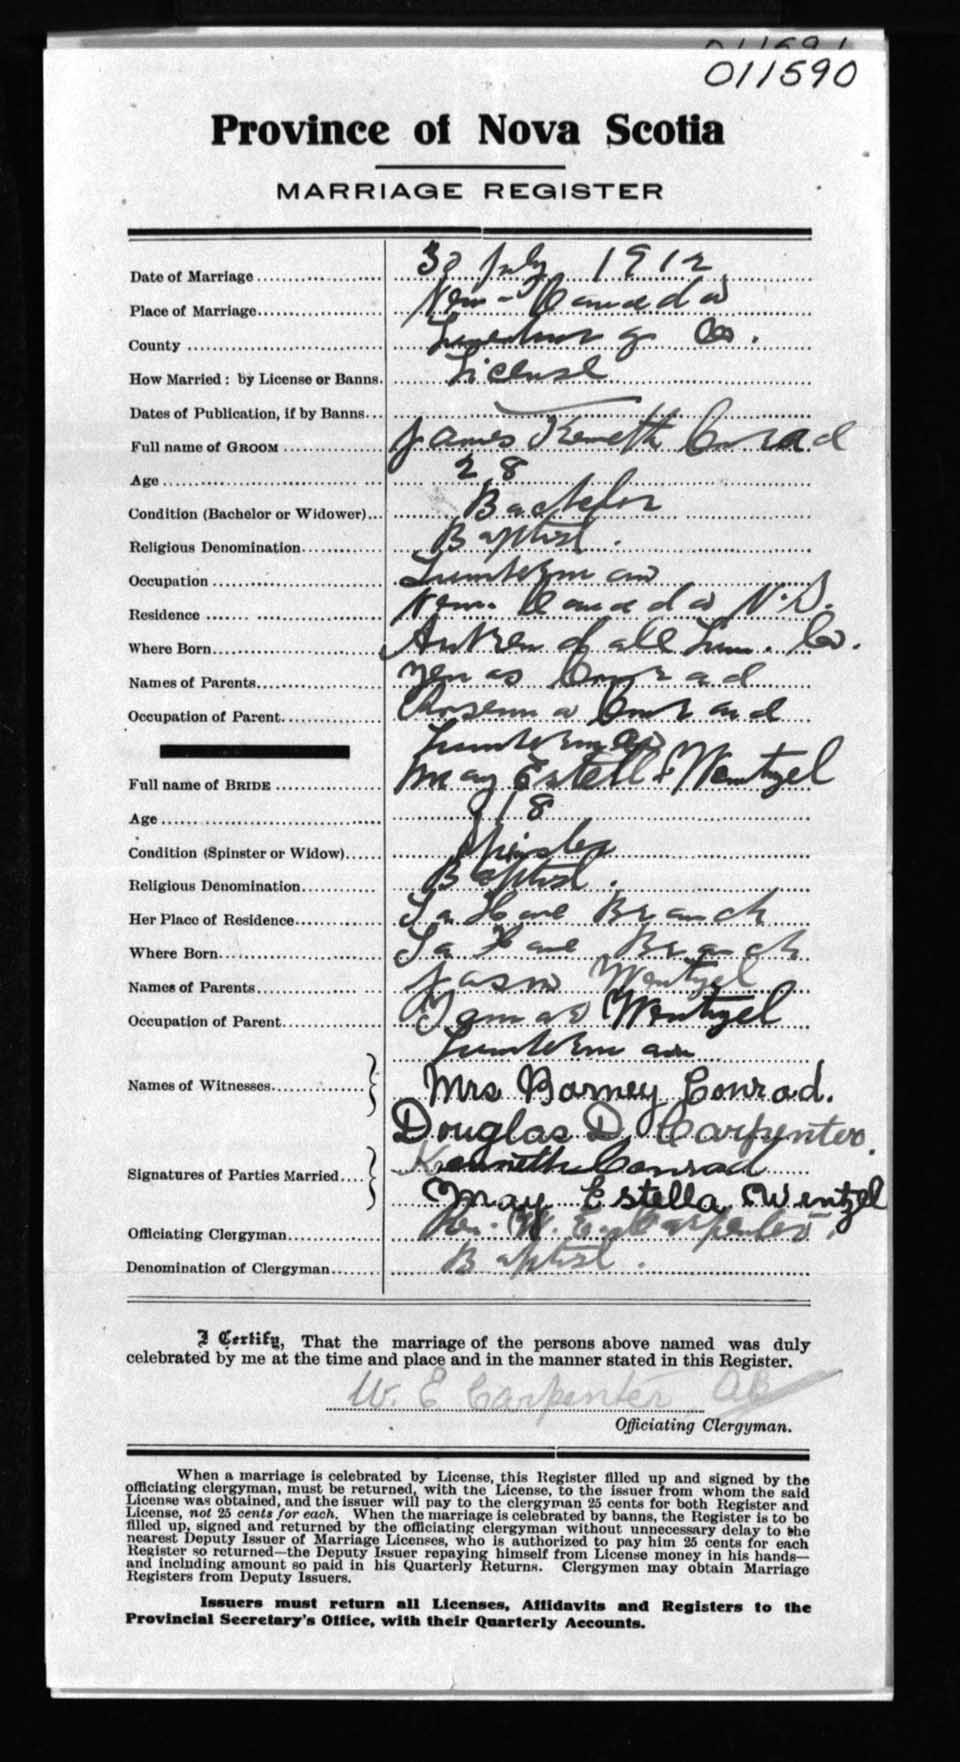 011590
Province of Nova Scotia
MARRIAGE REGISTER
Date of Marriage 30 July 1912
Place of Marriage New-Canada
County Lunenburg Co.
How Married: by License or Banns. License
Dates of Publication, if by Banns
Full name of GROOM James Kenneth Conrad
Age 28
Condition (Bachelor or Widower) Bachelor
Religious Denomination Baptist.
Occupation Lumberman
Residence New Canada N.S.
Where Born all Lun. Co.
Names of Parents Conrad
Occupation of Parent Conrad
Lumberman
Full name of BRIDE May Estella Wentzel
Age 18
Condition (Spinster or Widow) Spinster
Religious Denomination Baptist.
Her Place of Residence La Have Branch
Where Born La Have Branch
Names of Parents Jason Wentzel
Occupation of Parent Wentzel
Lumberman
Names of Witnesses Mrs Barney Conrad.
Douglas D. Carpenter.
Signatures of Parties Married Kenneth Conrad
May Estella Wentzel
Officiating Clergyman Rev. W. E. Carpenter.
Denomination of Clergyman Baptist.
I Certify, That the marriage of the persons above named was duly
celebrated by me at the time and place and in the manner stated in this Register.
W. E Carpenter AB
Officiating Clergyman.
When a marriage is celebrated by License, this Register filled up and signed by the
officiating clergyman, must be returned, with the License, to the issuer from whom the said
License was obtained, and the issuer will pay to the clergyman 25 cents for both Register and
License, not 25 cents for each. When the marriage is celebrated by banns, the Register is to be
filled up, signed and returned by the officiating clergyman without unnecessary delay to the
nearest Deputy Issuer of Marriage Licenses, who is authorized to pay him 25 cents for each
Register so returned—the Deputy Issuer repaying himself from License money in his hands—
and including amount so paid in his Quarterly Returns. Clergymen may obtain Marriage
Registers from Deputy Issuers.
Issuers must return all Licenses, Affidavits and Registers to the
Provincial Secretary's Office, with their Quarterly Accounts.